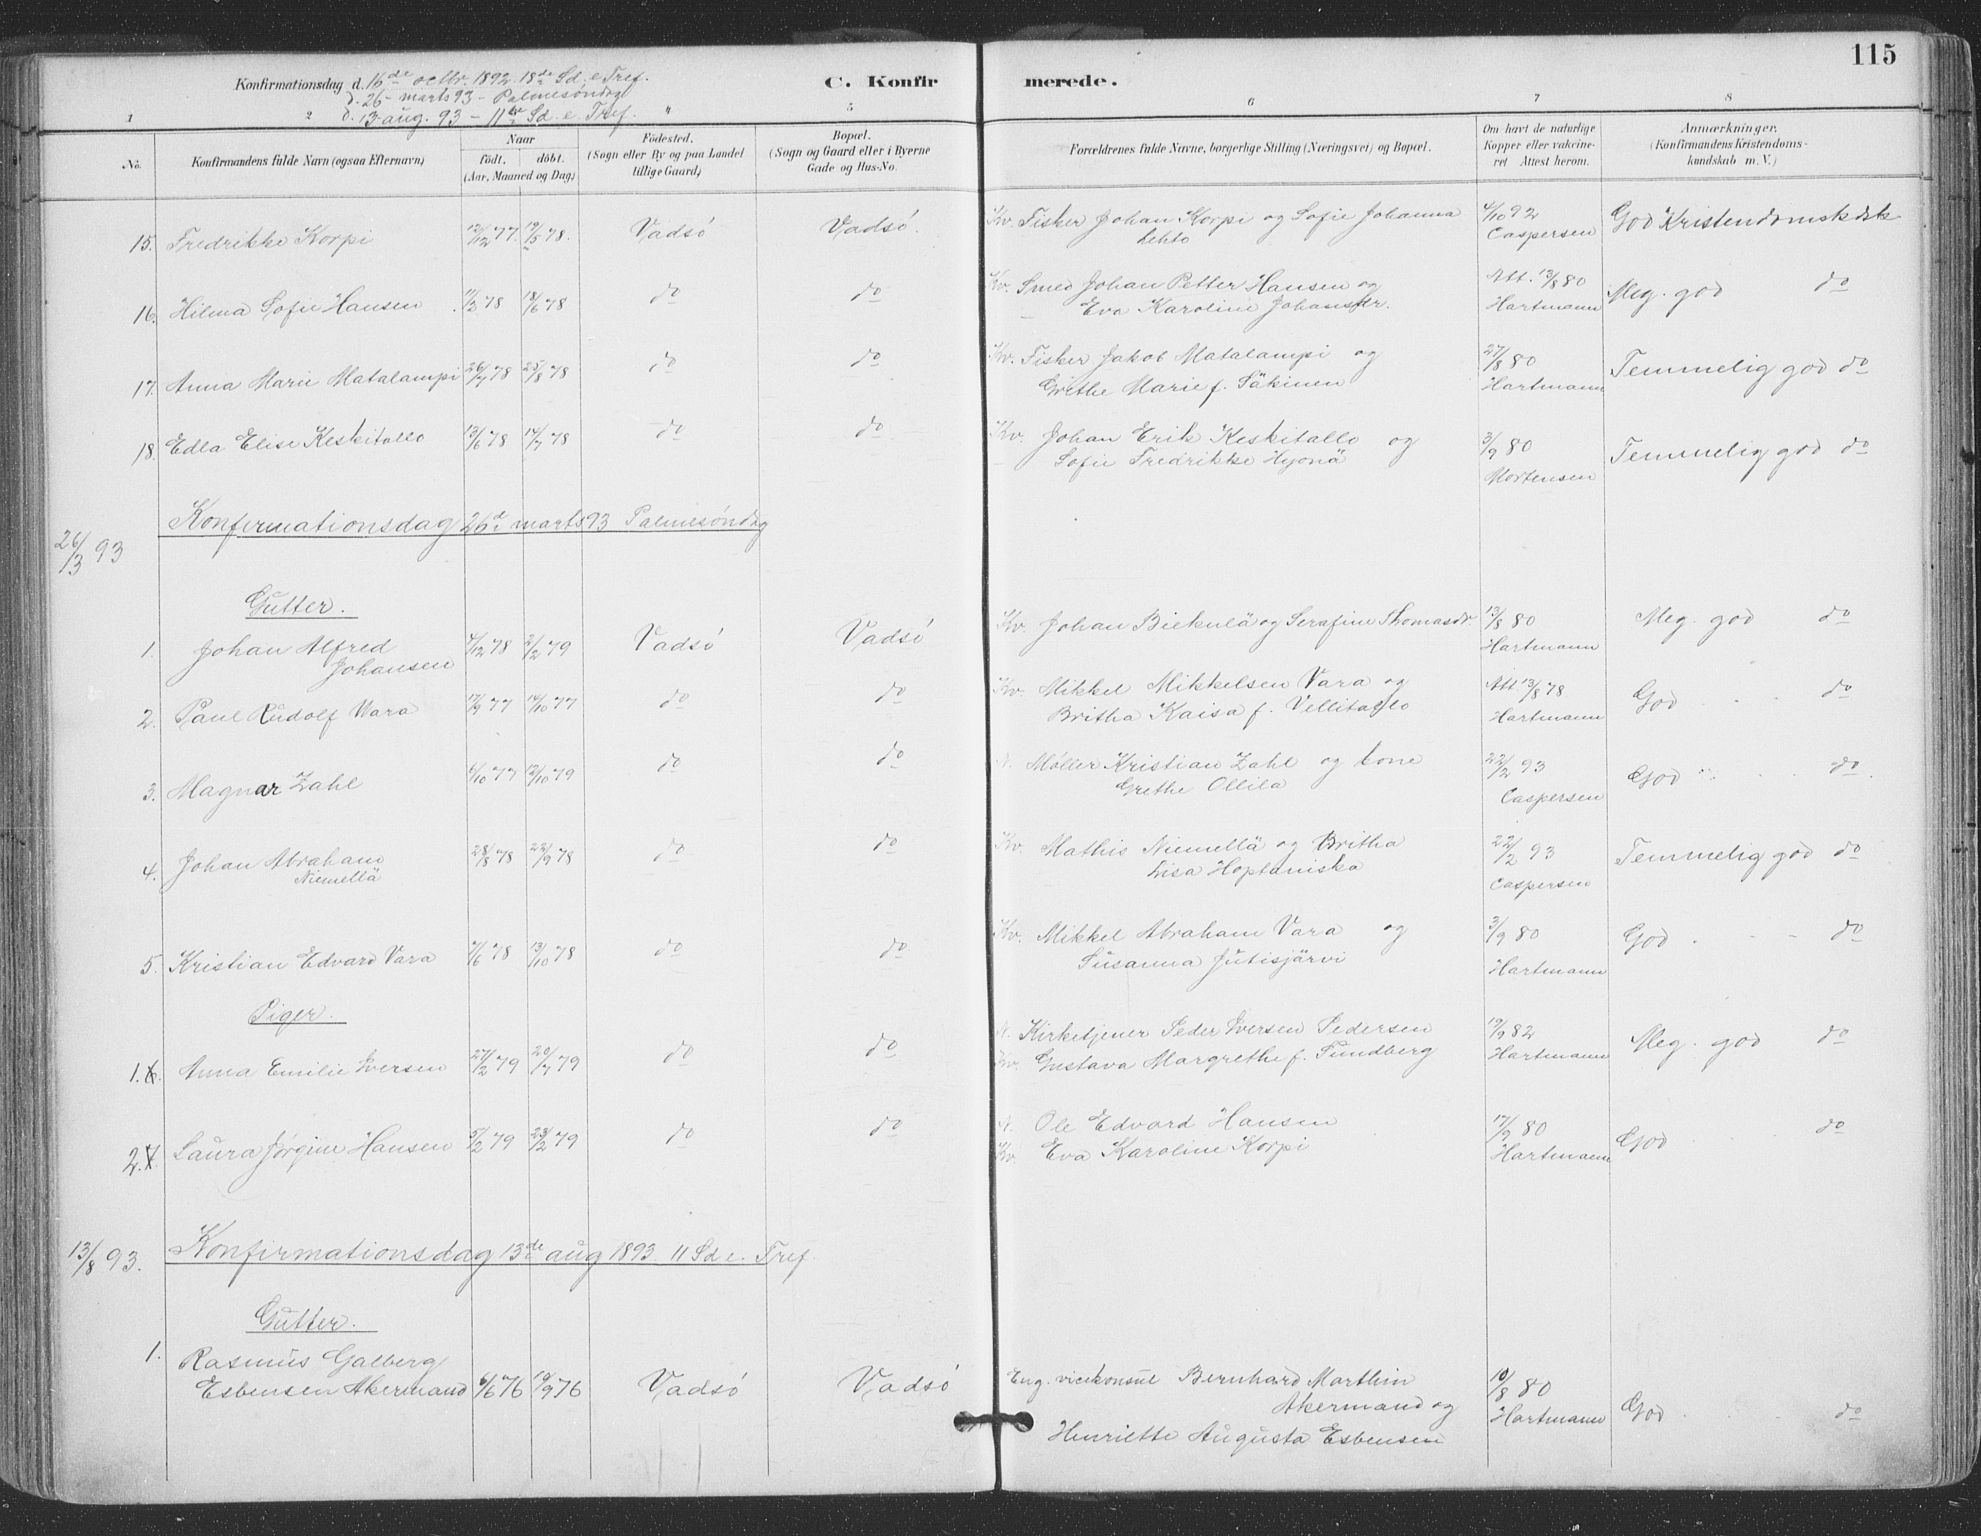 115
Konfirmationsdag d. 16de octbr. 1892. 18de Sd. e Tref.
d. 26 - marts 93 - Palmesøndag
d. 13 aug. 93 - 11te Sd. e. Tref. "
C. Konfirmerede.
1 2 5 6 7 8
No. Konfirmandens fulde Navn (ogsaa Efternavn)
Naar
født. døbt.
(Aar, Maaned og Dag)
Fødested.
(Sogn eller By og paa Landet
tillige Gaard)
Bopæl.
(Sogn og Gaard eller i Byerne
Gade og Hus-No.
Forældrenes fulde Navne, borgerlige Stilling (Næringsvei) og Bopæl.
Om havt de naturlige
Kopper eller vakcine-
ret Attest herom.
Anmærkninger.
(Konfirmandens Kristendoms-
kundskab m. V.)
15. Fredrikke Korpi 12/12 77. 19/5 78. Vadsö Vadsö. Kv. Fisker Johan Korpi og Sofie Johanna Lehto 4/10 92 Caspersen God Kristendomskdsk
16. Hilma Sofie Hansen 11/2 78 18/6 78 do do Kv. Smed Johan Petter Hansen og
Eva Karoline Johansdtr. Att. 13/8 80 Hartmann Meg. god do
17. Anna Marie Matalampi 26/7 78 25/8 78 do do Kv. Fisker Jakob Matalampi og
Grethe Marie f. Säkinen 27/8 80 Hartmann Temmelig god do
18. Edla Elise Keskitallo 13/6 78 14/7 78 do do Kv. Johan Erik Keskitallo og
Sofie Fredrikke Hyonä 3/9 80 Mortensen Temmelig god do
26/3 93 Konfirmationsdag 26de marts 93 Palmesöndag
Gutter.
1. Johan Alfred
Johansen 4/12 78 2/2 79 Vadsö Vadsö Kv. Johan Biekulä og Serafine Thomasdr. 13/8 80 Hartmann Meg. god do
2. Paul Rudolf Wara 17/9 77 14/10 77 do do Kv. Mikkel Mikkelsen Vara og
Britha Kaisa f. Vellitallo Att 13/8 78 Hartmann God do
3. Magnar Zahl 6/10 77 12/10 79 do do N. Møller Kristian Zahl og kone
Grethe Ollila 22/2 93 Caspersen God do
4. Johan Abraham
Niemellä 28/8 78 22/9 78 do do Kv. Mathis Niemellä og Britha
Lisa Hoptaniska 22/2 93 Caspersen Temmelig god do
5. Kristian Edvard Vara 7/6 78 13/10 78 do do Kv. Mikkel Abraham Vara og
Susanna Jutisjärvi 3/9 80 Hartmann God do
Piger.
1. Anna Emilie Iversen 27/2 79 20/7 79 do do N. Kirketjener Peder Iversen Pedersen
Kv. Gustava Margrethe f. Sundberg 19/9 82 Hartmann Meg. god do
2. Laura Jørgine Hansen 5/2 79 23/2 79 do do N. Ole Edvard Hansen
Kv. Eva Karoline Korpi 17/9 80 Hartmann God do
13/8 93. Konfirmationsdag 13de aug 1893 11 Sd e. Tref
Gutter.
1. Rasmus Galberg
Esbensen Akermand 6/6 76 19/9 76 Vadsö Vadsö Eng. vicekonsul Bernhard Marthin
Akermand og
Henriette Augusta Esbensen 10/8 80 Hartmann God do